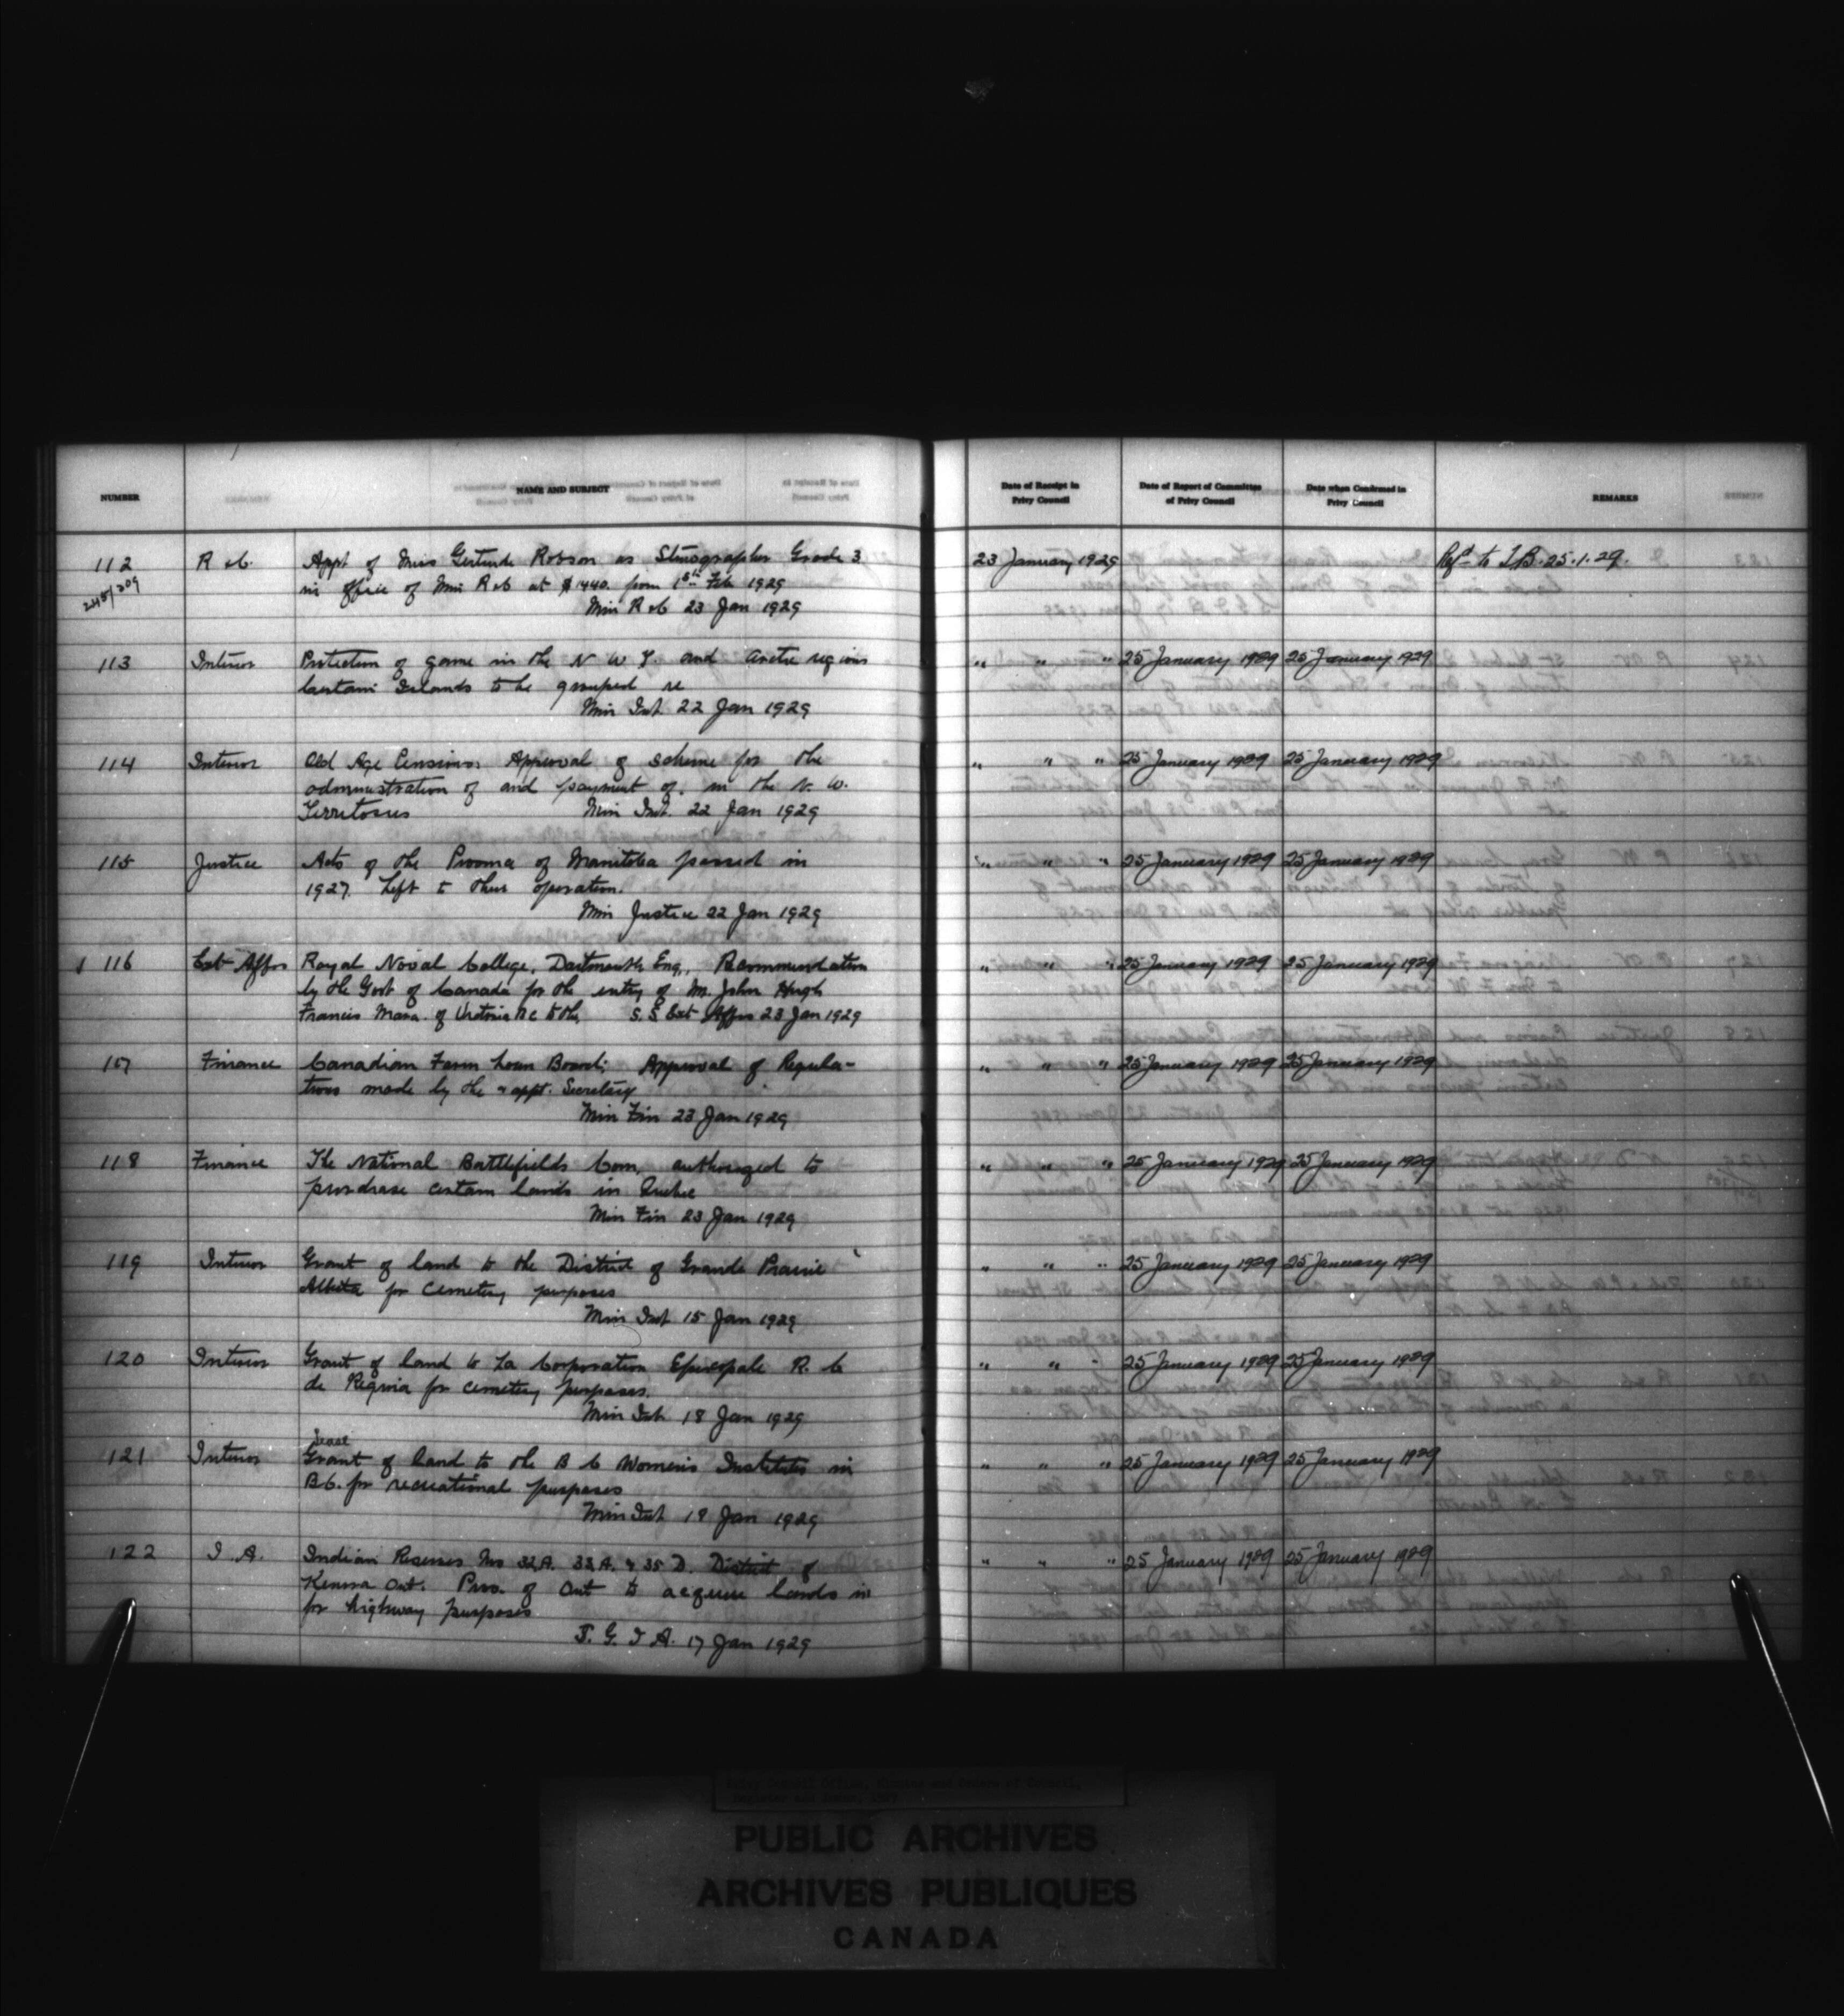 NUMBER
NAME AND SUBJECT
Date of Receipt in
Privy Council
Date of Report of Committee
of Privy Council
Date when Confirmed in
Privy Council
REMARKS
112 R & C. Appt of Miss Gertrude Robson as Stenographer Grade 3 23 January 1929 Refd to T.B. 25.1.29.
245/209 in Office of Min R & C at $1440. from 1st Feb 1929
Min R & C 23 Jan 1929
113 Interior Protection of game in the N W T. and Arctic regions " " " 25 January 1929 25 January 1929
Certain Islands to be grouped re
Min Int 22 Jan 1929
114 Interior Old Age Pensions Approval of scheme for the " " " 25 January 1929 25 January 1929
administration of and payment of, in the N. W.
Territories Min Int. 22 Jan 1929
115 Justice Acts of the Province of Manitoba passed in " " " 25 January 1929 25 January 1929
1927. Left to their operation.
Min Justice 22 Jan 1929
116 Ext Affrs Royal Naval College, Dartmouth Eng., Recommendation " " " 25 January 1929 25 January 1929
by the Govt of Canada for the entry of M. John Hugh
Francis Mara. of Victoria BC to the, S. S Ext Affrs 23 Jan 1929
117 Finance Canadian Farm Loan Board; Approval of Regula- " " " 25 January 1929 25 January 1929
tions made by the & appt. Secretary
Min Fin 23 Jan 1929
118 Finance The National Battlefields Com, authorized to " " " 25 January 1929 25 January 1929
purchase certain lands in Quebec
Min Fin 23 Jan 1929
119 Interior Grant of land to the District of Grande Prairie " " " 25 January 1929 25 January 1929
Alberta for Cemetery purposes
Min Int 15 Jan 1929
120 Interior Grant of land to La Corporation Episcopale R. C " " " 25 January 1929 25 January 1929
de Regina for cemetery purposes.
Min Int 18 Jan 1929
Lease
121 Interior Grant of land to the B C Women's Institutes in " " " 25 January 1929 25 January 1929
B C. for recreational purposes
Min Int 18 Jan 1929
122 I. A. Indian Reserves Nos 32A. 33A. & 35 D. District of " " " 25 January 1929 25 January 1929
Kenora Ont. Prov. of Ont to acquire lands in
for highway purposes
S. G. I A. 17 Jan 1929
PUBLIC ARCHIVES
ARCHIVES PUBLIQUES
CANADA